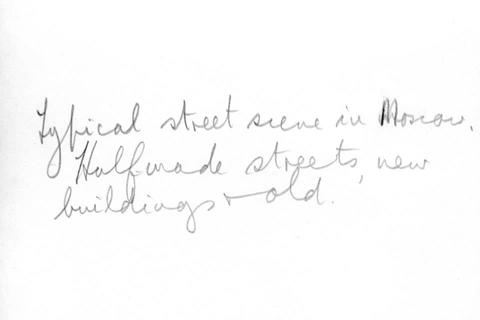 Typical street scene in Moscow.
Halfmade streets, new
buildings + old.